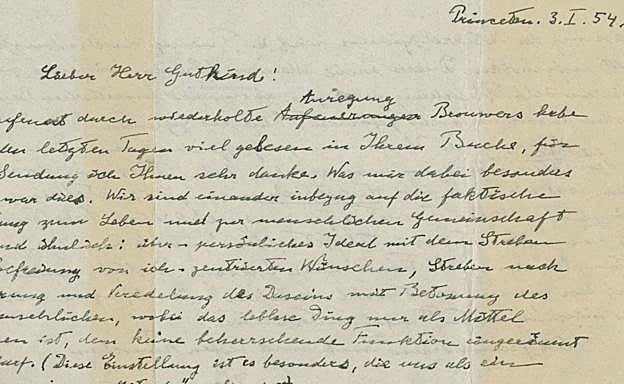 Princeton. 3. I. 54.
Lieber Herr Gutkind!
Anregung
durch wiederholte Brouwers habe
den letzten Tagen viel gelesen in Ihrem Buche, für
Sendung ich Ihnen sehr danke. Was mir dabei besonders
war dies. Wir sind einander inbezug auf die faktische
ung zum Leben und zur menschlichen Gemeinschaft
ähnlich: über-persönliches Ideal mit dem Streben
Befreiung von ich-zentrierten Wünschen, Streben nach
rung und Veredelung des Daseins mit Betonung des
menschlichen, wobei das leblose Ding nur als Mittel
en ist, dem keine beherrschende Funktion eingeräumt
darf. (Diese Einstellung ist es besonders, die uns als ein